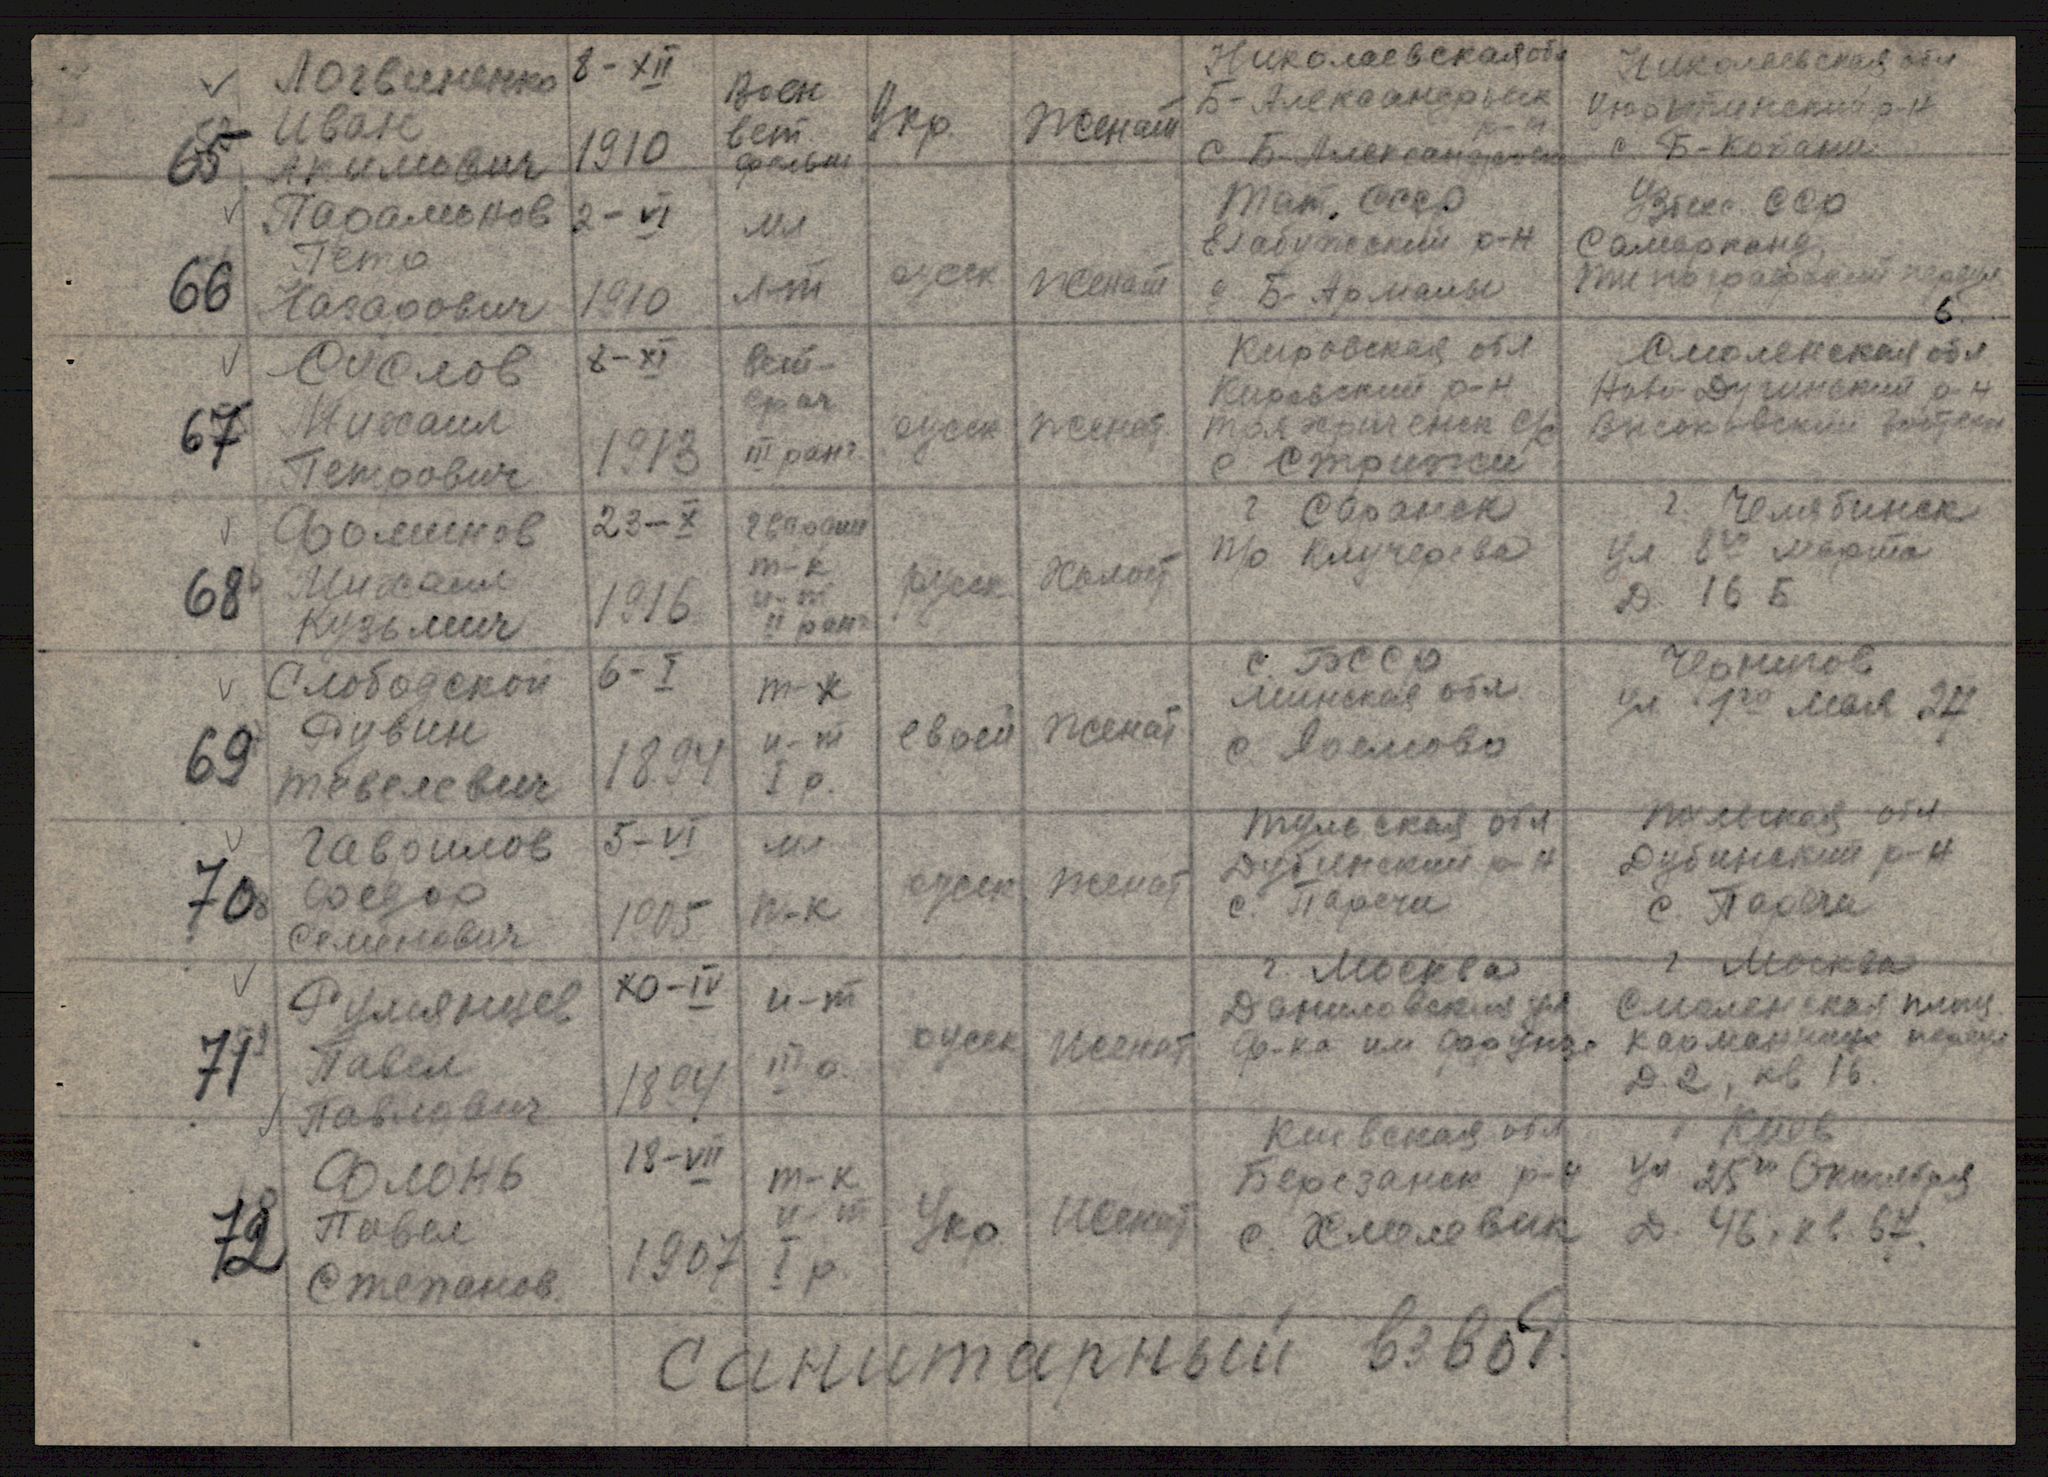 65 Логвиненко Иван Акимович 8-XII 1910 Воен вет фельш Укр. Женат Николаевская обл Б-Александрвск р-н с Б-Александровка Николаевская обл р-н с Б-Копани
66 Парамонов Петр Назарович 2-VI 1910 мл л-т русск Женат Тат. СССР Елабужский р-н с Б-Армалы Узбек ССР Самарканд Типографский переул 6
67 Суслов Михаил Петрович 8-XI 1913 Вет-врач III ранг русск Женат Кировская обл Кировский р-н с/с с Стрижи Смоленская обл Ново-Дугинский р-н Высоковский
68 Фоминов Михаил Кузьмич 23-X 1916 гвардии т-к и-т II ранг русск Холост г Саранск п/о Клучерева г. Челябинск ул 8го марта Д. 16 Б
69 Слободской Рувин Тевелевич 6-I 1894 т-к и-т I р. еврей Женат с. БССР Минская обл с. Чернигов ул 1го мая 24
70 Гаврилов Федор Семенович 5-VI 1905 мл т-к русск Женат Тульская обл Дубинский р-н с. Паречи Тульская обл Дубинский р-н с. Паречи
71 Румянцев Павел Павлович XO-IV 1894 и-т III р. русск Женат г Москва Даниловская ул ф-ка им Фрунзе г Москва Смоленская площ Карманицк переул Д. 2, кв 16.
72 Флонь Павел Степанов 18-VII 1907 т-к и-т I р. Укр Женат Киевская обл Березанск р-н с. Хмелевик г Киев ул 25го Октября Д. 46. кв. 67.
Санитарный взвод.